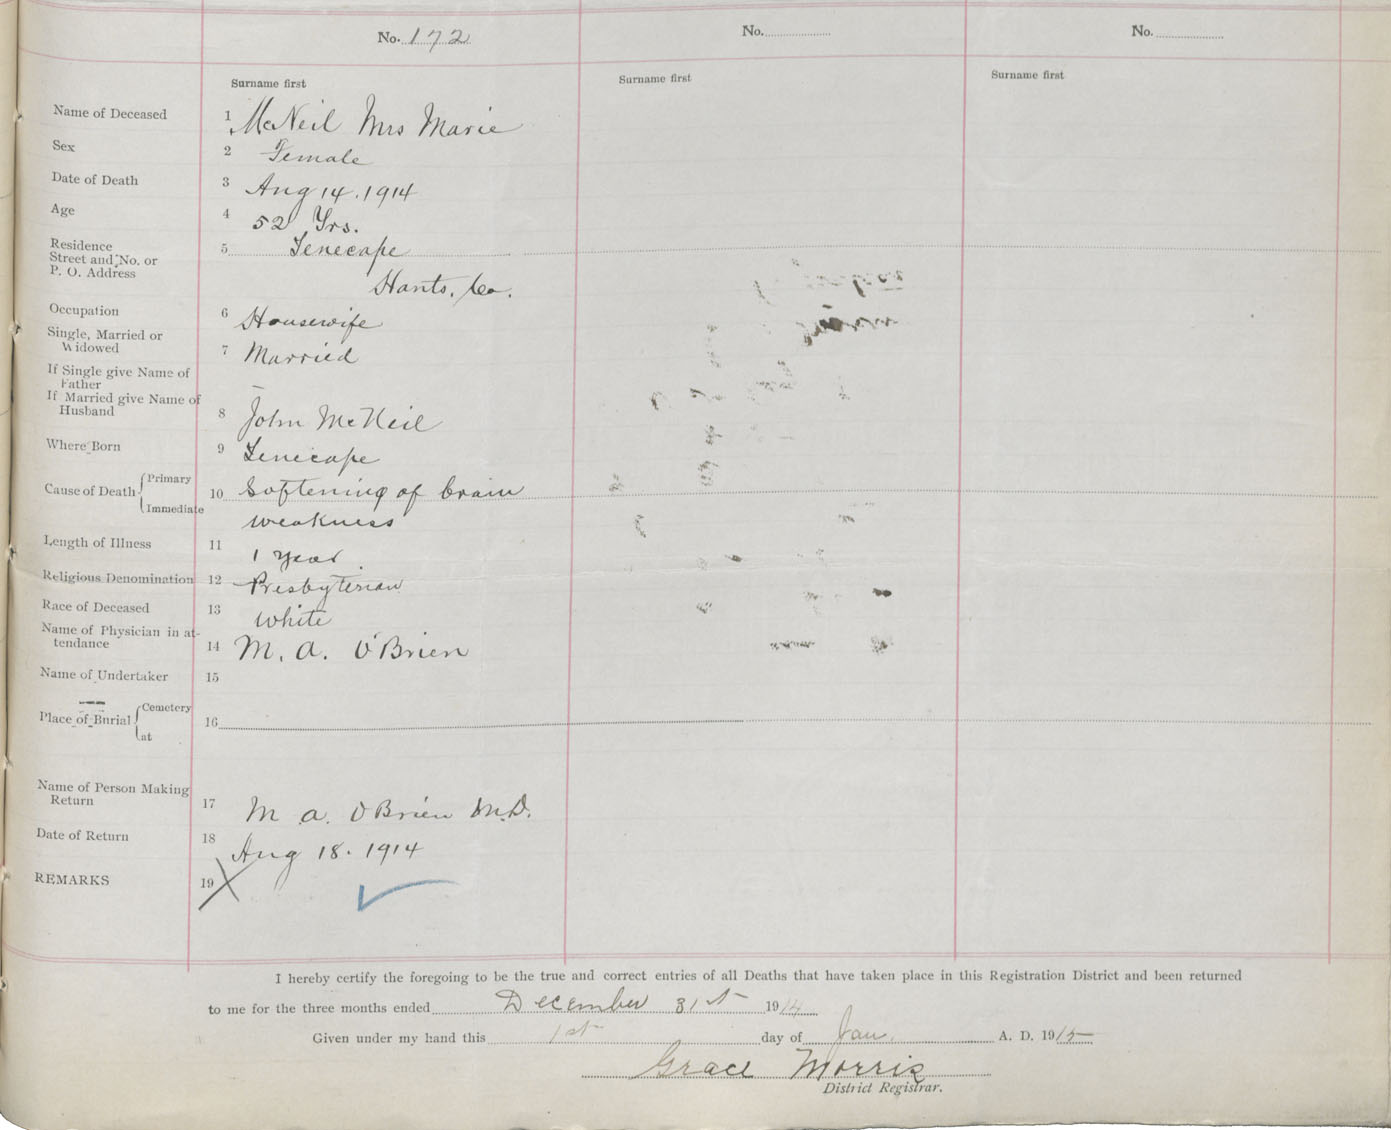 No. 172 No. No.
Surname first Surname first Surname first
Name of Deceased 1 McNeil Mrs Marie
Sex 2 Female
Date of Death 3 Aug 14. 1914
Age 4 52 Yrs.
Residence
Street and No. or
P. O. Address 5 Tenecape
Hants. Co.
Occupation 6 Housewife
Single, Married or
Widowed 7 Married
If Single give Name of
Father
If Married give Name of
Husband 8 John McNeil
Where Born 9 Tenecape
Cause of Death Primary
Immediate 10 Softening of brain
weakness
Length of Illness 11 1 year
Religious Denomination 12 Presbyterian
Race of Deceased 13 White
Name of Physician in at-
tendance 14 M. A. O'Brien
Name of Undertaker 15
Place of Burial Cemetery
at 16
Name of Person Making
Return 17 M. A. O'Brien M.D.
Date of Return 18 Aug 18. 1914
REMARKS 19
I hereby certify the foregoing to be the true and correct entries of all Deaths that have taken place in this Registration District and been returned
to me for the three months ended December 31st 1914
Given under my hand this 1st day of Jan. A. D. 1915
Grace Morris
District Registrar.